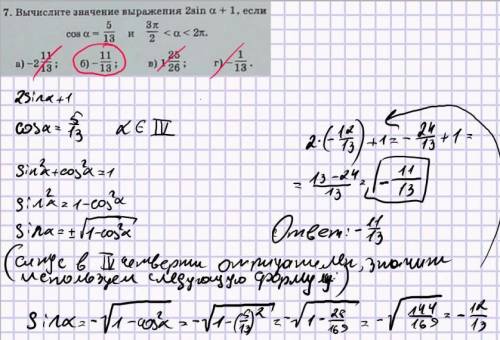 7. Вычислите значение выражения 2sin α + 1, если
cos α = 5/13 и 3π/2 < α < 2π.
а) -2 11/13; б) -11/13; в) 1 25/26; г) -1/13.
2sinα+1
cosα = 5/13 α ∈ IV
sin²α+cos²α=1
sin²α=1-cos²α
sinα=±√(1-cos²α)
2·(-12/13)+1=-24/13+1=
=(13-24)/13=-11/13
Ответ: -11/13
(синус в IV четверти отрицателен, значит
используем следующую формулу)
sinα=-√(1-cos²α)=-√(1-(5/13)²)=-√(1-25/169)=-√(144/169)=-12/13